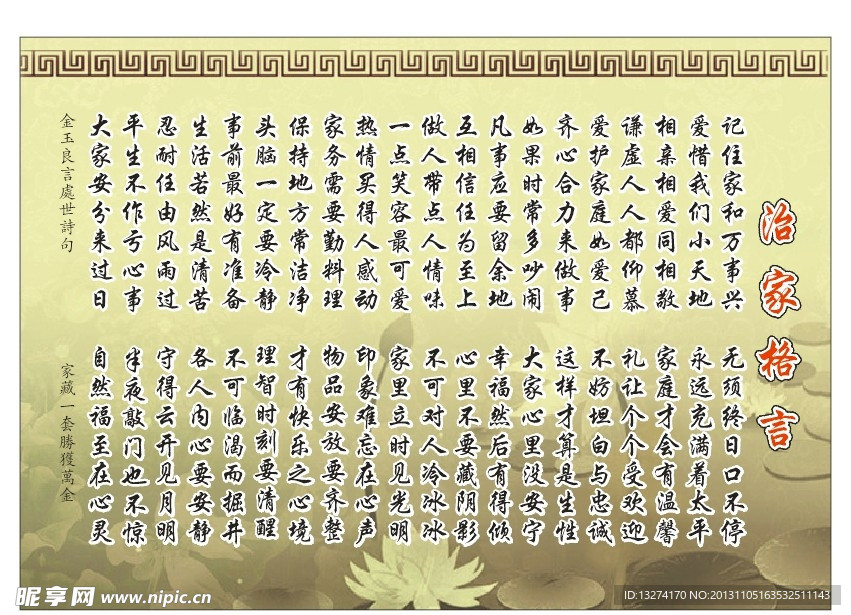 治家格言
记住家和万事兴
无须终日口不停
爱惜我们小天地
永远充满着太平
相亲相爱同相敬
家庭才会有温馨
谦虚人人都仰慕
礼让个个受欢迎
爱护家庭如爱己
不妨坦白与忠诚
齐心合力来做事
这样才算是生性
如果时常多吵闹
大家心里没安宁
凡事应要留余地
幸福然后有得倾
互相信任为至上
心里不要藏阴影
做人带点人情味
不可对人冷冰冰
一点笑容最可爱
家里立时见光明
热情买得人感动
印象难忘在心声
家务需要勤料理
物品安放要齐整
保持地方常洁净
才有快乐之心境
头脑一定要冷静
理智时刻要清醒
事前最好有准备
不可临渴而掘井
生活若然是清苦
各人内心要安静
忍耐任由风雨过
守得云开见月明
平生不作亏心事
半夜敲门也不惊
大家安分来过日
自然福至在心灵
金玉良言處世詩句
家藏一套勝獲萬金
昵享网 www.nipic.cn
ID:13274170 NO:20131105163532511143